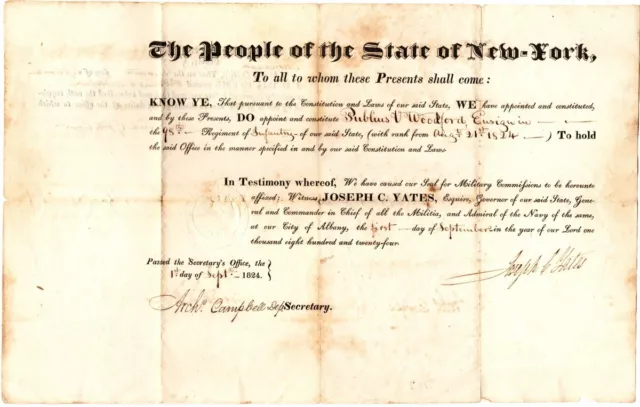 The People of the State of New-York,
To all to whom these Presents shall come:
KNOW YE, That pursuant to the Constitution and Laws of our said State, WE have appointed and constituted,
and by these Presents, DO appoint and constitute Publius V Woodford Ensign in
the 98th Regiment of Infantry of our said State, (with rank from Augt 21st 1824 ) To hold
the said Office in the manner specified in and by our said Constitution and Laws
In Testimony whereof, We have caused our Seal for Military Commissions to be hereunto
affixed; Witness, JOSEPH C. YATES, Esquire, Governor of our said State, Gene-
ral and Commander in Chief of all the Militia, and Admiral of the Navy of the same,
at our City of Albany, the first day of September in the year of our Lord one
thousand eight hundred and twenty-four.
Passed the Secretary's Office, the
1st day of Septr 1824.
Joseph C Yates
Archd. Campbell Dep Secretary.